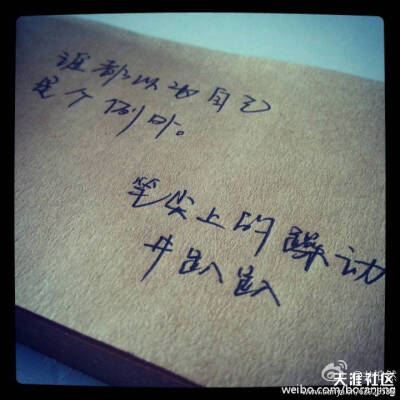 谁都以为自己
是个例外。
笔尖上的躁动
井趴趴
天涯社区
weibo.com/boranjing